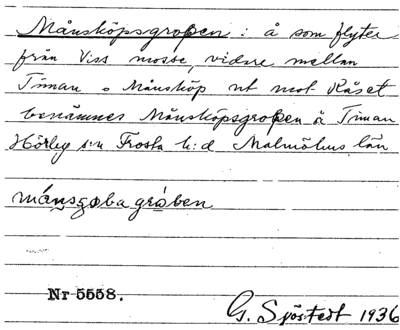 Månsköpsgropen : å som flyter
från Viss mosse, vidare mellan
Timan o Månsköp ut mot Råset
benämnes Månsköpsgropen å Timan
Hörby s:n Frosta h:d Malmöhus län
månsgoba gróben
Nr 5558.
G. Sjöstedt 1936